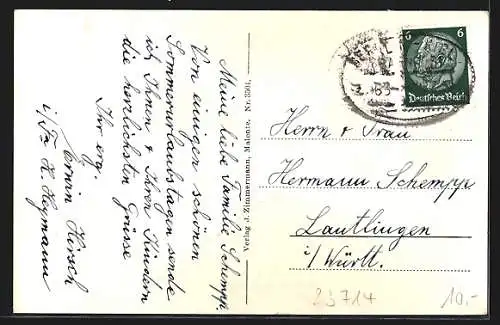 Meine liebe Familie Schempp.
Von einigen schönen
Sommerurlaubstagen sende
ich Ihnen & Ihren Kindern
die herzlichsten Grüsse
Ihr erg.
Erwin Hirsch
i/Fa K. Heymann
Verlag J. Zimmermann, Malente, Nr. 3504.
6 6
Deutsches Reich
Herrn & Frau
Hermann Schempp
Lautlingen
i/ Württ.
23714
10.-